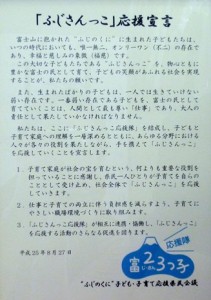 「ふじさんっこ」応援宣言
富士山に抱かれた“ふじのくに”に生まれた子どもたちは、
いつの時代においても、唯一無二、オンリーワン（不二）の存在で
あり、幸福と慈しみの象徴（福慈）です。
この大切な子どもたちである“ふじさんっこ”を、物心ともに
豊かな富士の民として育て、子どもの笑顔があふれる社会を実現
することが、私たちの願いです。
また、生まれたばかりの子どもは、一人では生きていけない
弱い存在です。一番弱い存在である子どもを、富士の民として
育てていくことは、人間として最も尊い「仕事」であり、大人の
責任として果たしていかなければなりません。
私たちは、ここに「ふじさんっこ応援隊」を結成し、子どもと
子育て家庭への理解を一層深めるとともに、あらゆる分野における
人々が各々の役割を果たしながら、手を携えて「ふじさんっこ」
の応援をすることを宣言します。
1．子育て家庭が社会の宝を育むという、何よりも重要な役割
を担っていることに感謝し、県民一人ひとりが子育てを自らの
こととして受け止め、社会全体で「ふじさんっこ」を応援して
いきます。
2．仕事と子育ての両立に伴う負担感を減らすよう、子育てに
やさしい職場環境づくりに取り組みます。
3．「ふじさんっこ応援隊」が相互に連携・協働し、「ふじさんっこ」
を応援する活動のさらなる促進を図ります。
応援隊
平成25年8月27日
富23っ子
“ふじのくに”子ども・子育て応援県民会議